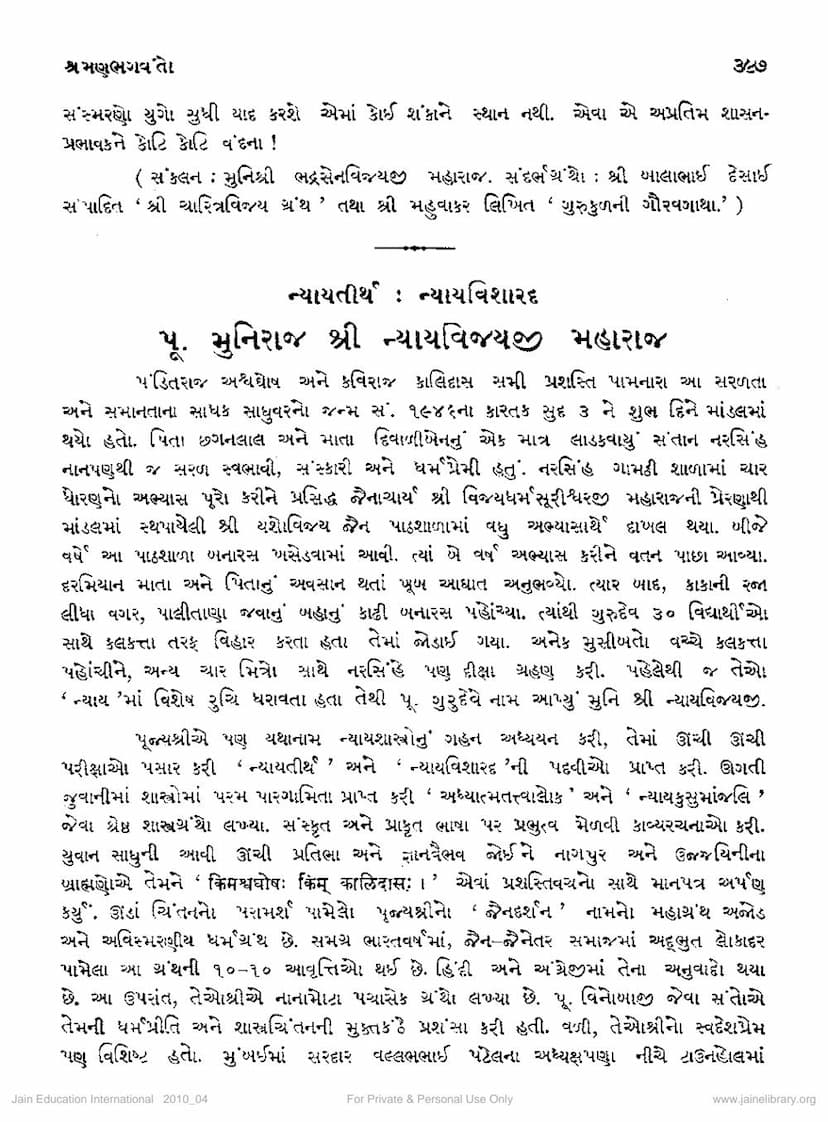 શ્રમણભગવંતો
૩૯૭
સંસ્મરણો યુગો સુધી યાદ કરશે એમાં કોઈ શંકાને સ્થાન નથી. એવા એ અપ્રતિમ શાસન-
પ્રભાવકને કોટિ કોટિ વંદના !
( સંકલન : મુનિશ્રી ભદ્રસેનવિજયજી મહારાજ. સંદર્ભગ્રંથો : શ્રી બાલાભાઈ દેસાઈ
સંપાદિત ‘ શ્રી ચારિત્રવિજય ગ્રંથ ’ તથા શ્રી મહુવાકર લિખિત ‘ ગુરુકુળની ગૌરવગાથા.’ )
ન્યાયતીર્થ : ન્યાયવિશારદ
પૂ. મુનિરાજ શ્રી ન્યાયવિજયજી મહારાજ
પંડિતરાજ અશ્વઘોષ અને કવિરાજ કાલિદાસ સમી પ્રશસ્તિ પામનારા આ સરળતા
અને સમાનતાના સાધક સાધુવરનો જન્મ સં. ૧૯૪૬ના કારતક સુદ ૩ ને શુભ દિને માંડલમાં
થયો હતો. પિતા છગનલાલ અને માતા દિવાળીબેનનું એક માત્ર લાડકવાયું સંતાન નરસિંહ
નાનપણથી જ સરળ સ્વભાવી, સંસ્કારી અને ધર્મપ્રેમી હતું. નરસિંહ ગામઠી શાળામાં ચાર
ધોરણનો અભ્યાસ પૂરો કરીને પ્રસિદ્ધ જૈનાચાર્ય શ્રી વિજયધર્મસૂરીશ્વરજી મહારાજની પ્રેરણાથી
માંડલમાં સ્થપાયેલી શ્રી યશોવિજય જૈન પાઠશાળામાં વધુ અભ્યાસાર્થે દાખલ થયા. બીજે
વર્ષે આ પાઠશાળા બનારસ ખસેડવામાં આવી. ત્યાં બે વર્ષ અભ્યાસ કરીને વતન પાછા આવ્યા.
દરમિયાન માતા અને પિતાનું અવસાન થતાં ખૂબ આઘાત અનુભવ્યો. ત્યાર બાદ, કાકાની રજા
લીધા વગર, પાલીતાણા જવાનું બહાનું કાઢી બનારસ પહોંચ્યા. ત્યાંથી ગુરુદેવ ૩૦ વિદ્યાર્થીઓ
સાથે કલકત્તા તરફ વિહાર કરતા હતા તેમાં જોડાઈ ગયા. અનેક મુસીબતો વચ્ચે કલકત્તા
પહોંચીને, અન્ય ચાર મિત્રો સાથે નરસિંહે પણ દીક્ષા ગ્રહણ કરી. પહેલેથી જ તેઓ
‘ ન્યાય ’માં વિશેષ રુચિ ધરાવતા હતા તેથી પૂ. ગુરુદેવે નામ આપ્યું મુનિ શ્રી ન્યાયવિજયજી.
પૂજ્યશ્રીએ પણ યથાનામ ન્યાયશાસ્ત્રોનું ગહન અધ્યયન કરી, તેમાં ઊંચી ઊંચી
પરીક્ષાઓ પસાર કરી ‘ ન્યાયતીર્થ ’ અને ‘ ન્યાયવિશારદ ’ની પદવીઓ પ્રાપ્ત કરી. ઊગતી
જુવાનીમાં શાસ્ત્રોમાં પરમ પારગામિતા પ્રાપ્ત કરી ‘ અધ્યાત્મતત્ત્વાલોક ’ અને ‘ ન્યાયકુસુમાંજલિ ’
જેવા શ્રેષ્ઠ શાસ્ત્રગ્રંથો લખ્યા. સંસ્કૃત અને પ્રાકૃત ભાષા પર પ્રભુત્વ મેળવી કાવ્યરચનાઓ કરી.
યુવાન સાધુની આવી ઊંચી પ્રતિભા અને જ્ઞાનવૈભવ જોઈને નાગપુર અને ઉજ્જયિનીના
બ્રાહ્મણોએ તેમને ‘ किमश्वघोषः किम् कालिदासः । ’ એવાં પ્રશસ્તિવચનો સાથે માનપત્ર અર્પણ
કર્યું. ઊંડાં ચિંતનનો પરામર્શ પામેલો પૂજ્યશ્રીનો ‘ જૈનદર્શન ’ નામનો મહાગ્રંથ અજોડ
અને અવિસ્મરણીય ધર્મગ્રંથ છે. સમગ્ર ભારતવર્ષમાં, જૈન–જૈનેતર સમાજમાં અદ્ભુત લોકાદર
પામેલા આ ગ્રંથની ૧૦-૧૦ આવૃત્તિઓ થઈ છે. હિંદી અને અંગ્રેજીમાં તેના અનુવાદો થયા
છે. આ ઉપરાંત, તેઓશ્રીએ નાનામોટા પચાસેક ગ્રંથો લખ્યા છે. પૂ. વિનોબાજી જેવા સંતોએ
તેમની ધર્મપ્રીતિ અને શાસ્ત્રચિંતનની મુક્તકંઠે પ્રશંસા કરી હતી. વળી, તેઓશ્રીનો સ્વદેશપ્રેમ
પણ વિશિષ્ટ હતો. મુંબઈમાં સરદાર વલ્લભભાઈ પટેલના અધ્યક્ષપણા નીચે ટાઉનહોલમાં
Jain Education International 2010_04
For Private & Personal Use Only
www.jainelibrary.org